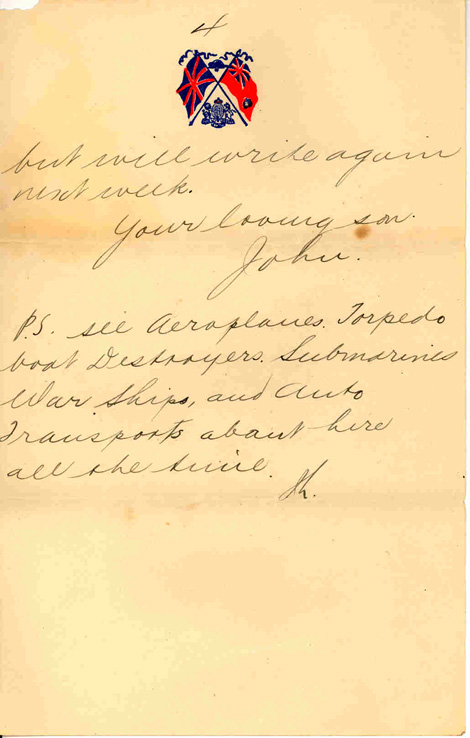 4
but will write again
next week.
Your loving son.
John.
P.S. see Aeroplanes. Torpedo
boat Destroyers. Submarines
War Ships, and Auto
Transports about here
all the time.
Jh.